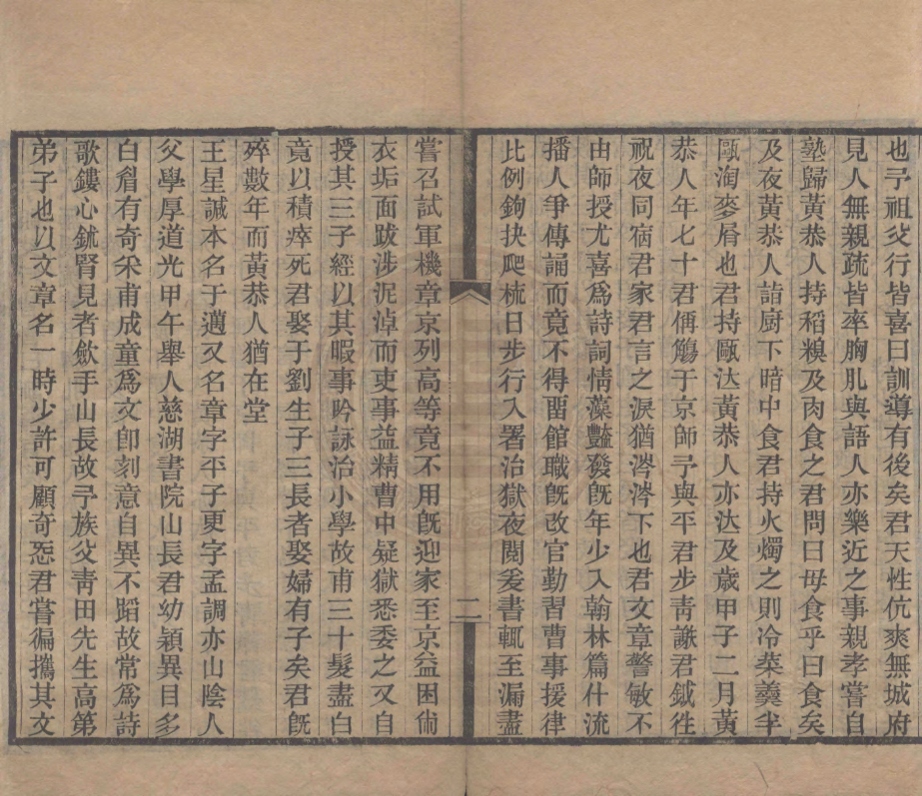 也予祖父行皆喜曰訓導有後矣君天性伉爽無城府
見人無親疏皆率胸肊與語人亦樂近之事親孝嘗自
塾歸黃恭人持稻糗及肉食之君問曰母食乎曰食矣
及夜黃恭人詣厨下暗中食君持火燭之則冷菜羹半
甌淘麥屑也君持甌汏黃恭人亦汏及歲甲子二月黃
恭人年七十君偁觴于京師予與平君步靑譤君鉞徃
祝夜同宿君家君言之淚猶涔涔下也君文章警敏不
由師授尤喜爲詩詞情藻豔發旣年少入翰林篇什流
播人爭傳誦而竟不得畱館職旣改官勤習曹事援律
比例鉤抉爬梳日步行入署治獄夜閱爰書輒至漏盡
二
嘗召試軍機章京列高等竟不用旣迎家至京益困㡀
衣垢面跋涉泥淖而吏事益精曹中疑獄悉委之又自
授其三子經以其暇事吟詠治小學故甫三十髮盡白
竟以積瘁死君娶于劉生子三長者娶婦有子矣君旣
歿數年而黃恭人猶在堂
王星諴本名于邁又名章字平子更字孟調亦山陰人
父學厚道光甲午舉人慈湖書院山長君幼穎異目多
白眉有奇采甫成童爲文卽刻意自異不蹈故常爲詩
歌鏤心鉥腎見者歛手山長故予族父靑田先生高第
弟子也以文章名一時少許可顧奇君嘗徧攜其文